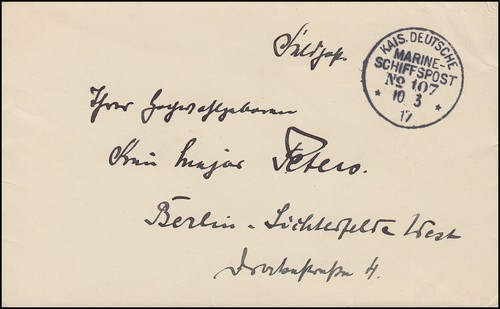 Feldpost.
KAIS. DEUTSCHE
MARINE-
SCHIFFSPOST
No 107
* 10. 3 *
17
Ihrer Hochwohlgeboren
Frau Major Peters.
Berlin-Lichterfelde West
Drakestraße 4.